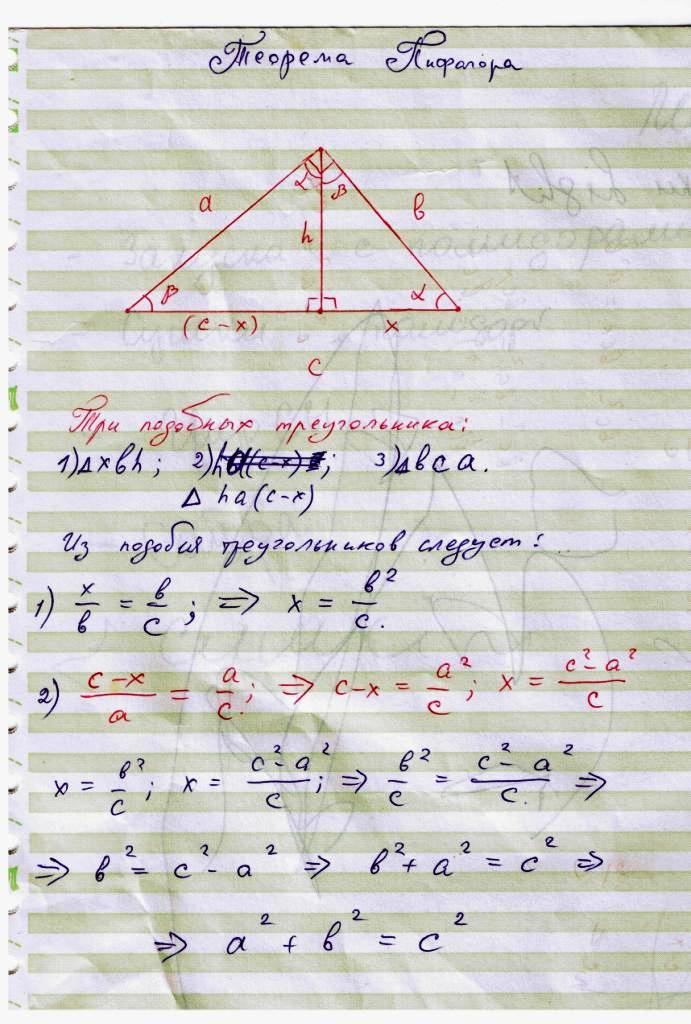 Теорема Пифагора
α β
a h в
β α
(c-x) x
c
Три подобных треугольника:
1) Δxвh; 2) h (c-x); 3) Δвca.
Δ ha(c-x)
Из подобия треугольников следует:
1) x/в = в/c; ⇒ x = в²/c.
2) c-x/a = a/c; ⇒ c-x = a²/c; x = c²-a²/c
x = в²/c; x = c²-a²/c; ⇒ в²/c = c²-a²/c. ⇒
⇒ в² = c²-a² ⇒ в²+a² = c² ⇒
⇒ a² + в² = c²